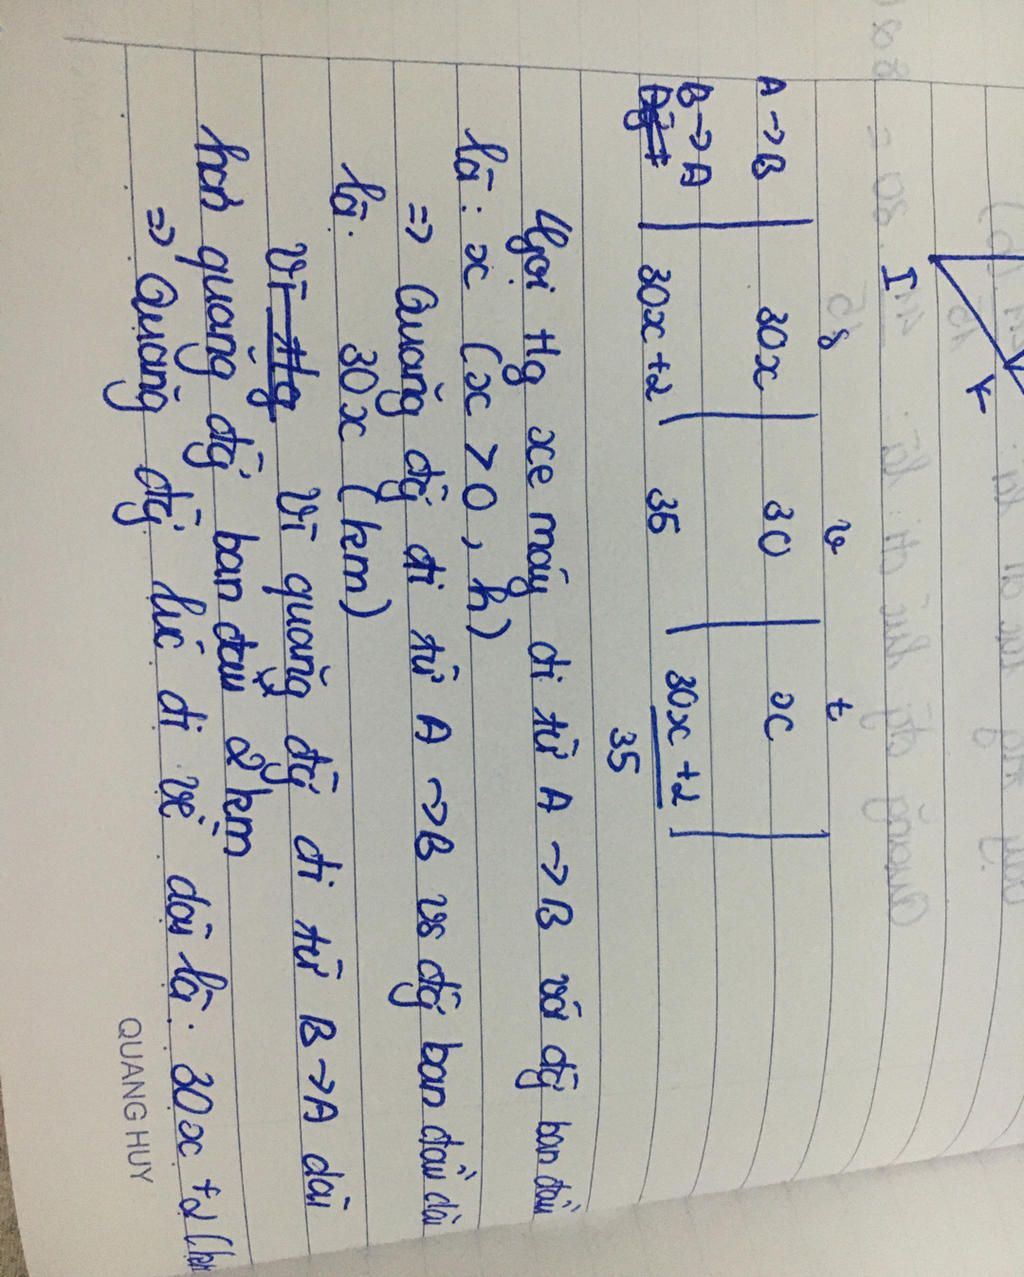 s v t
A → B 30x 30 x
B → A 30x + 2 35 30x + 2
35
Gọi tg xe máy đi từ A → B với đg ban đầu
là : x ( x > 0 , h )
=> Quãng đg đi từ A → B vs đg ban đầu dài
là : 30x ( km )
Vì tg Vì quãng đg đi từ B → A dài
hơn quãng đg ban đầu 2 km
=> Quãng đg lúc đi về dài là : 30x + 2 ( km
QUANG HUY
I
K